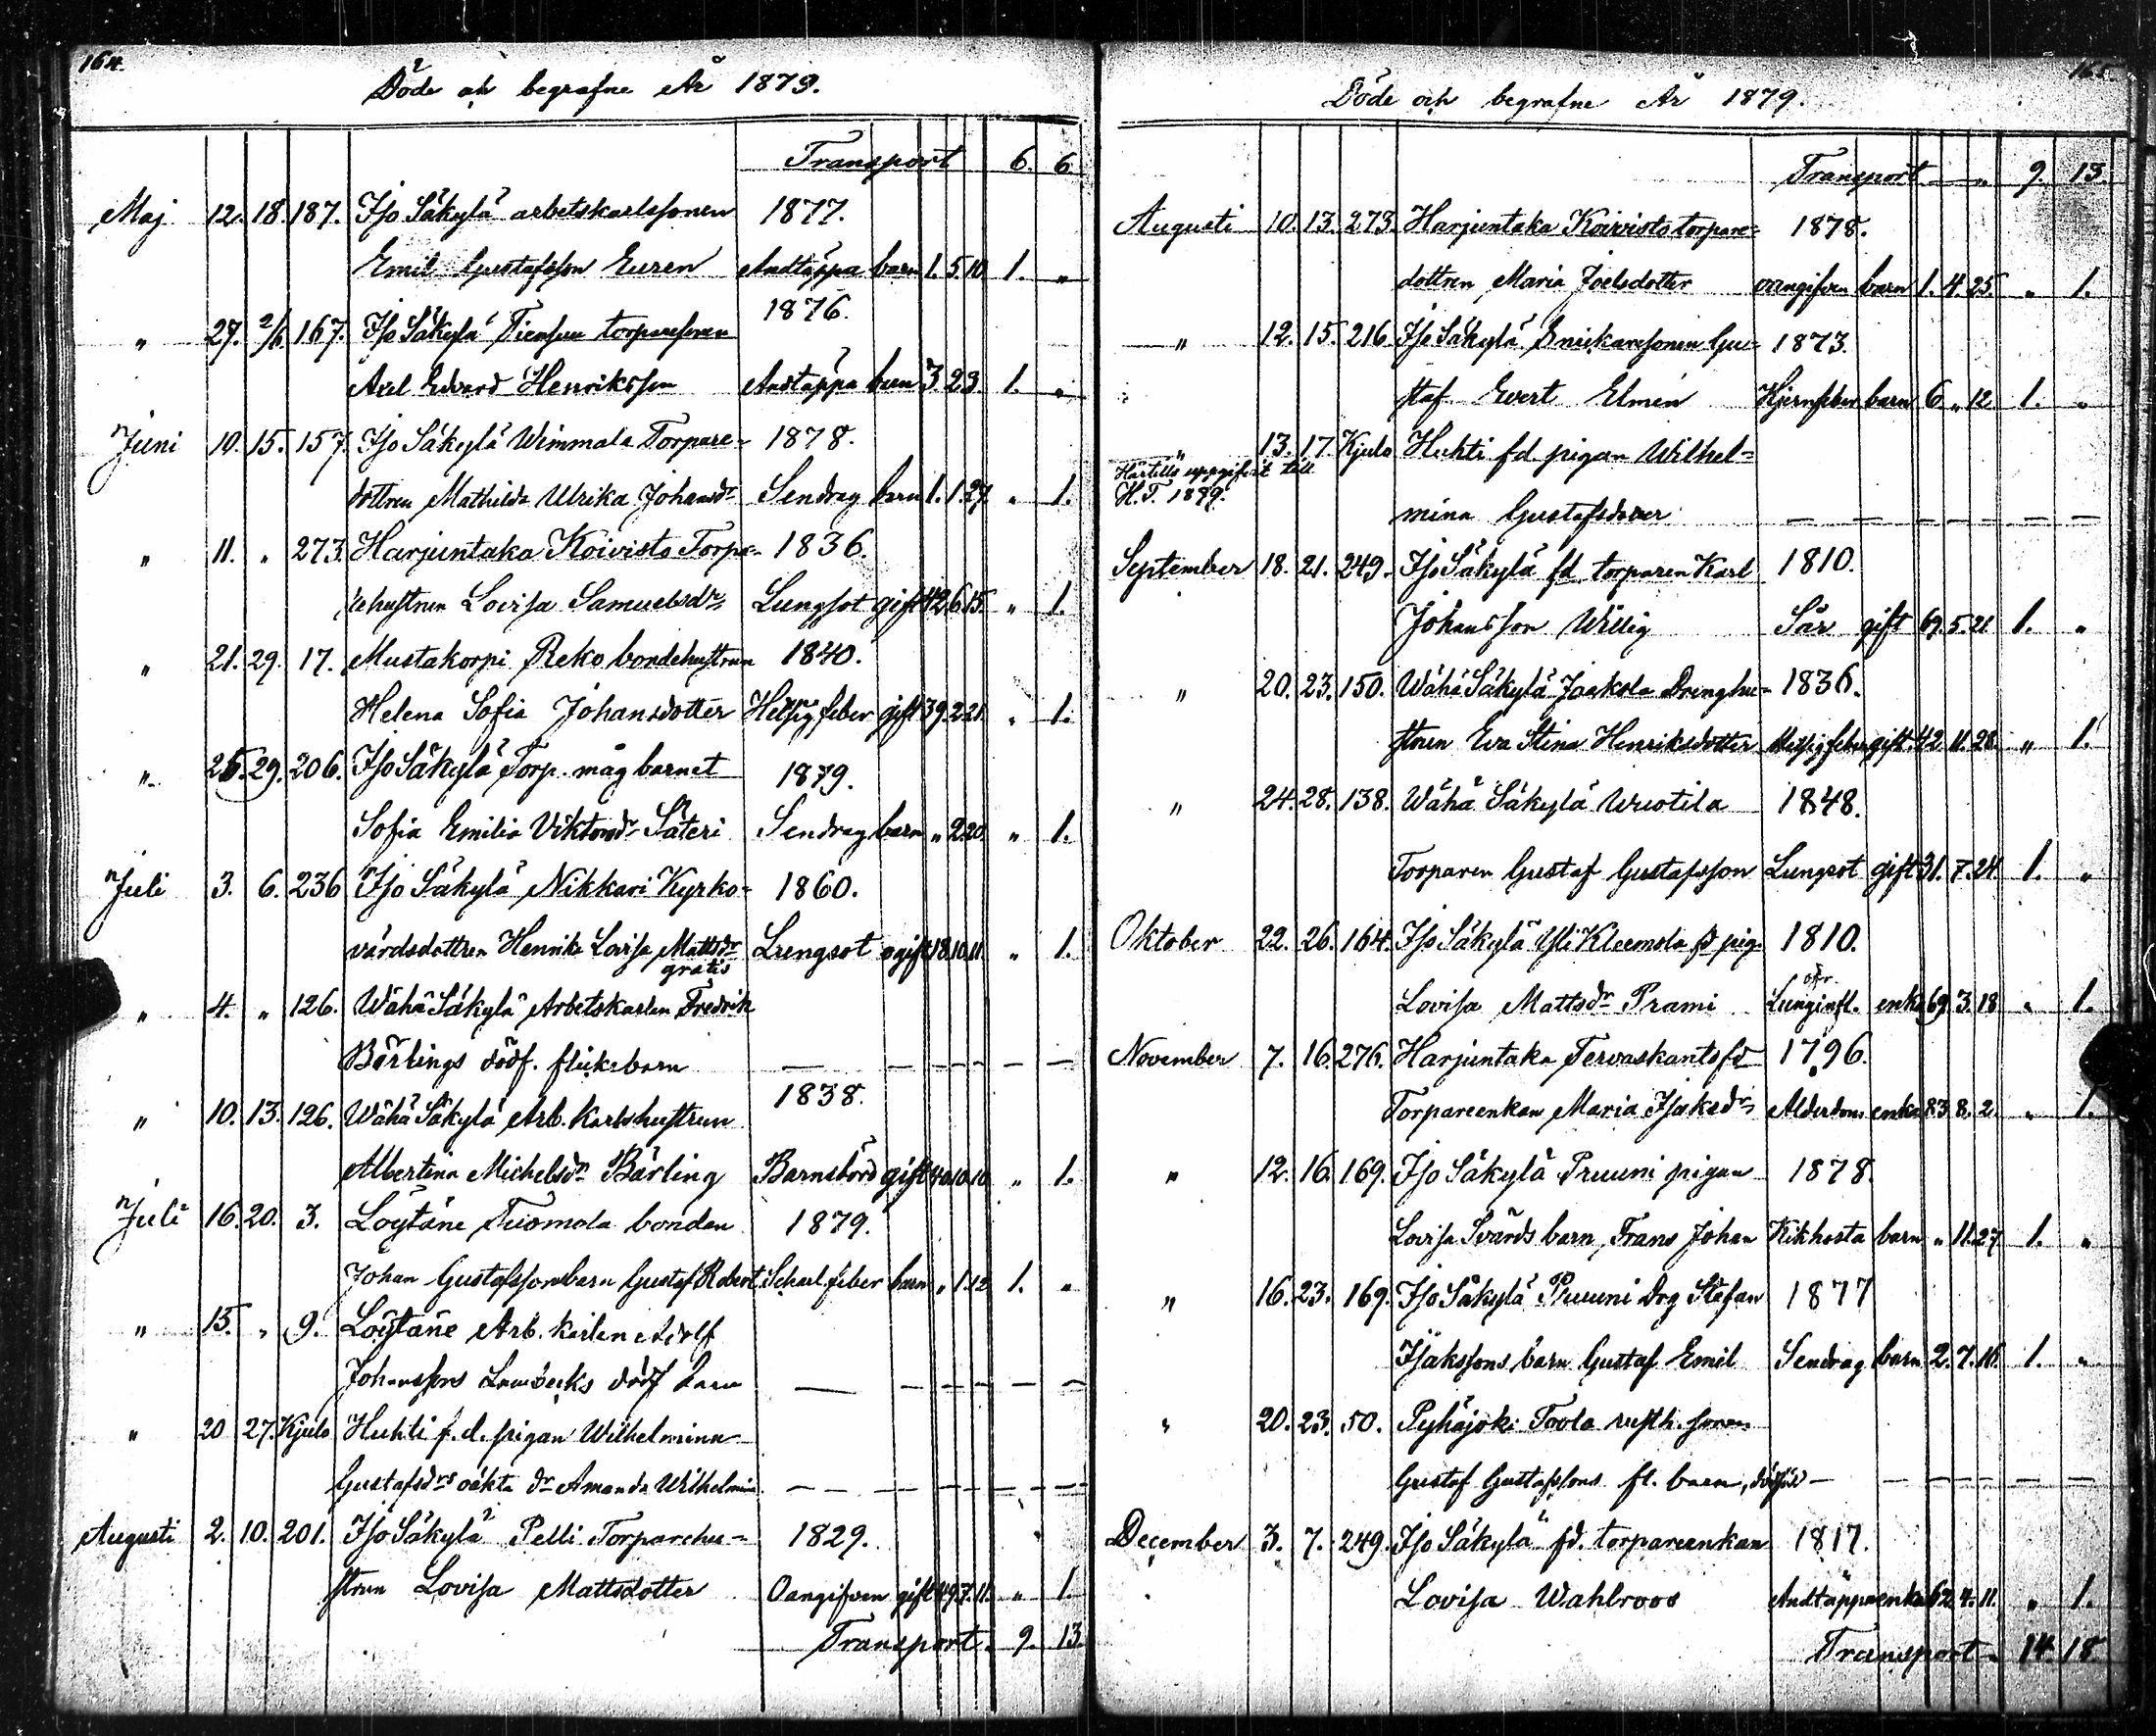 164.
Döde och begrafne År 1879.
Transport 6. 6.
Maj 12. 18. 187. Iso Säkylä arbetskarlssonen 1877.
Emil Gustafsson Euren Andtäppa barn 1. 5. 10. 1. "
" 27. 2/6. 167. Iso Säkylä Tiensuu torparesonen 1876.
Axel Edvard Henriksson Andtäppa barn 3. 2 3. 1. "
Juni 10. 15. 157. Iso Säkylä Wimmala Torpare- 1878.
dottren Mathilda Ulrika Johansdr Sendrag barn 1. 1. 27. " 1.
" 11. " 273. Harjuntaka Koivisto Torpa- 1836.
rehustrun Lovisa Samuelsdr Lungsot gift 42. 6. 15. " 1.
" 21. 29. 17. Mustakorpi Reko bondehustrun 1840.
Helena Sofia Johansdotter Hetsig feber gift 39. 2. 21. " 1.
" 25. 29. 206. Iso Säkylä Torp. måg barnet 1879.
Sofia Emilia Viktorsdr Säteri Sendrag barn " 2. 20. " 1.
Juli 3. 6. 236 Iso Säkylä Nikkari Kyrko- 1860.
värdsdottren Henrika Lovisa Mattsdr Lungsot ogift 18. 10. 11. " 1.
gratis
" 4. " 126. Wähä Säkylä Arbetskarlen Fredrik
Bärlings dödf. flickebarn — — — — — — —
" 10. 13. 126. Wähä Säkylä Arb. karlshustrun 1838.
Albertina Michelsdr Bärling Barnsbörd gift 40. 10. 10. " 1.
Juli 16. 20. 3. Löytäne Tuomola bonden 1879.
Johan Gustafssons barn Gustaf Robert Scharl. feber barn " 1. 12 1. "
" 15. " 9. Löytäne Arb. karlen Adolf
Johanssons dödf barn — — — — — —
" 20 27. Kjulo Huhti f. d. pigan Wilhelmina
Gustafsdrs oäkta dr Amanda Wilhelmina — — — — — — —
Augusti 2. 10. 201. Iso Säkylä Pelli Torparehu- 1829.
strun Lovisa Mattsdotter Oangifven gift 49. 7. 11. " 1.
Transport. 9. 13.
165.
Döde och begrafne År 1879.
Transport — " 9. 13.
Augusti 10. 13. 273. Harjuntaka Koivisto torpare- 1878.
dottren Maria Joelsdotter oangifven barn 1. 4. 25. " 1.
" 12. 15. 216 Iso Säkylä Snickaresonen Gu- 1873.
staf Evert Elmén Hjernfeber barn 6 " 12 1. "
" 13. 17. Kjulo Huhti fd. pigan Wilhel-
Härtills uppgifvit till
H. T. 1879.
mina Gustafsdotter — — — — — — —
September 18. 21. 249. Iso Säkylä fd torparen Karl 1810.
Johansson Willig Sår gift 69. 5. 21 1. "
" 20. 23. 150. Wähä Säkylä Jaakola Drenghu- 1836.
strun Eva Stina Henriksdotter Hetsig feber gift. 42. 11. 28. " 1.
" 24. 28. 138. Wähä Säkylä Wuotila 1848.
Torparen Gustaf Gustafsson Lungsot gift 31. 7. 24. 1. "
Oktober 22. 26. 164. Iso Säkylä Yli Kleemola fd pig. 1810.
Lovisa Mattsdr Prami Lunginfl. enka 69. 3. 18 " 1.
November 7. 16. 276. Harjuntaka Tervaskanto fd 1796.
Torpareenkan Maria Isaksdr Alderdom enka 83. 8. 2. " 1.
" 12. 16. 169. Iso Säkylä Pruuni pigan 1878.
Lovisa Svärds barn, Frans Johan Kikhosta barn " 11. 27 1. "
" 16. 23. 169. Iso Säkylä Pruuni Drg Stefan 1877
Isakssons barn Gustaf Emil Sendrag barn 2. 7. 16. 1. "
" 20. 23. 50. Pyhäjoki Toola rusth. sonen
Gustaf Gustafssons fl. barn, dödfödd — — — — — — —
December 3. 7. 249. Iso Säkylä fd. torpareenkan 1817.
Lovisa Wahlroos Andtäppa enka 62. 4. 11. " 1.
Transport — 14. 18